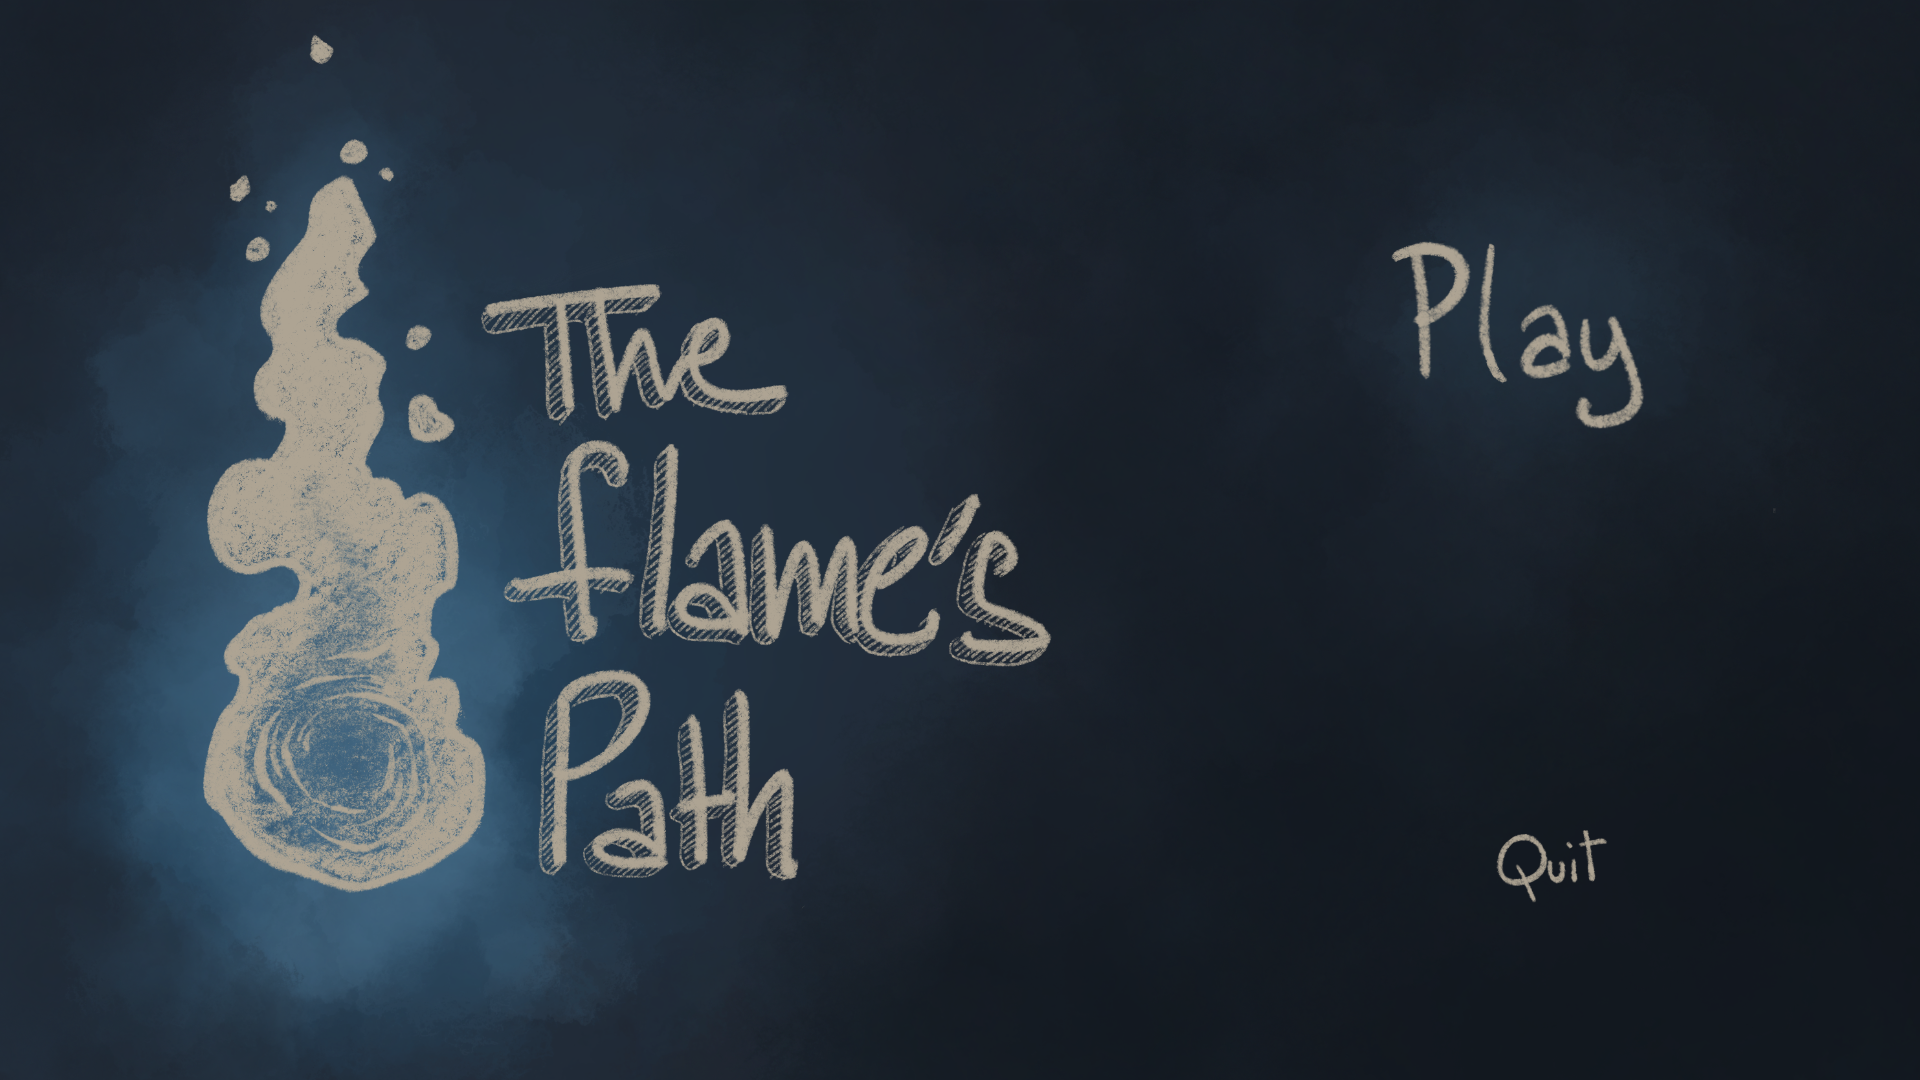 The
flame's
Path
Play
Quit